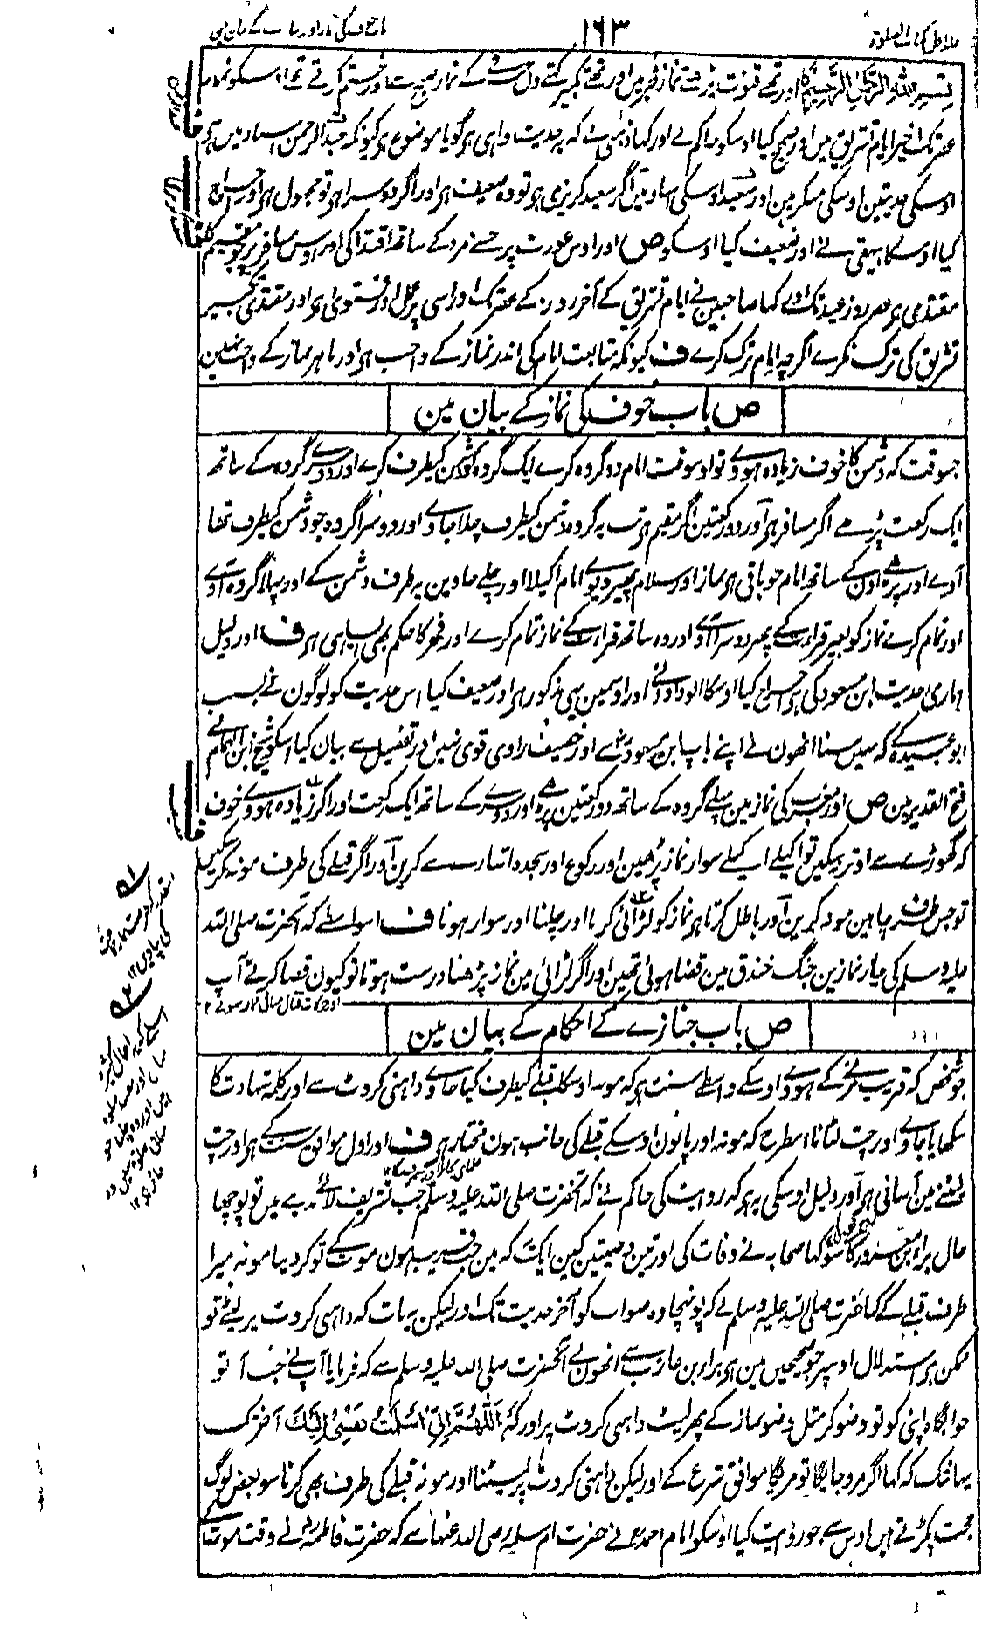 ۱۶۳
بسم اللہ الرحمن الرحیم اور تھے قنوت پڑھتے نماز فجر میں اور تھے تکبیر کہتے دن عرفے کے نماز صبح سے اور ختم کرتے تھے اوسکو نماز
عصر تک اخیر ایام تشریق میں اور صحیح کیا اوسکو حاکم نے اور کہا ذہبی نے کہ یہ حدیث واہی ہی گویا موضوع ہی کیونکہ عبد الرحمن اسناد میں ہی
اوسکی حدیثین اوسکی منکر ہین اور سعید اوسکی اسناد مین اگر سعید کریزی ہی تو وہ ضعیف ہی اور اگر دوسرا ہی تو مجہول ہی اور اخراج
کیا اوسکا بیہقی نے اور ضعیف کیا اوسکو ص اور اوس عورت پر جسنے مرد کے ساتھ اقتدا کی اور اوس مسافر پر جو مقیم کا
مقتدی ہی عصر روز عید تک اور کہا صاحبین نے ایام تشریق کے آخر دن کے عصر تک اور اسی پر عمل اور فتوی ہی اور مقتدی تکبیر
تشریق کی ترک نکرے اگرچہ امام ترک کرے ف کیونکہ متابعت امام کی اندر نماز کے واجب ہی اور باہر نماز کے واجب نہین
ص باب خوف کی نماز کے بیان مین
جسوقت کہ دشمن کا خوف زیادہ ہووے تو اوسوقت امام دو گروہ کرے ایک گروہ کو دشمن کیطرف کرے اور دوسرے گروہ کے ساتھ
ایک رکعت پڑھے اگر مسافر ہی اور دو رکعتین اگر مقیم ہی تب یہ گروہ دشمن کیطرف چلا جاوے اور دوسرا گروہ جو دشمن کیطرف تھا
آوے اور پڑھے اون کے ساتھ امام جو باقی ہی نماز اور سلام پھیر دیوے امام اکیلا اور چلے جاوین یہ طرف دشمن کے اور پہلا گروہ آوے
اور تمام کرے نماز کو بغیر قراءت کے پھر دوسرا آوے اور وہ ساتھ قراءت کے نماز تمام کرے اور فجر کا حکم بھی ایسا ہی ہی ف اور دلیل
ہماری حدیث ابن مسعود کی ہی اخراج کیا اوسکا ابوداود نے اور اوسمین یہی مذکور ہی اور ضعیف کیا اس حدیث کو لوگون نے بسبب
ابو عبیدہ کے کہ نہیں سنا انھون نے اپنے باپ ابن مسعود سے اور خصیف راوی قوی نہین اور تفصیل سے بیان کیا اسکو شیخ ابن الہمام نے
فتح القدیر مین ص اور مغرب کی نماز مین پہلے گروہ کے ساتھ دو رکعتین پڑھے اور دوسرے کے ساتھ ایک رکعت اور اگر زیادہ ہووے خوف
کہ گھوڑے سے اوتر نسکین تو اکیلے اکیلے سوار نماز پڑھین اور رکوع اور سجدہ اشارے سے کرین اور اگر قبلے کی طرف مونہ نکر سکین
تو جس طرف چاہین مونہ کرین اور باطل کرتا ہی نماز کو لڑائی کرنا اور چلنا اور سوار ہونا ف اسواسطے کہ آنحضرت صلی اللہ
علیہ وسلم کی چار نمازین جنگ خندق مین قضا ہوئی تھین اور اگر لڑائی مین نماز پڑھنا درست ہوتا تو کیون قضا کرتے آپ
ص باب جنازے کے احکام کے بیان مین
جو شخص کہ قریب مرنے کے ہووے اوسکے واسطے سنت ہی کہ مونہ اوسکا قبلے کیطرف کیا جاوے داہنی کروٹ سے اور کلمہ شہادت کا
سکھایا جاوے اور چت لٹانا اسطرح کہ مونہ اور پانون اوسکے قبلے کی جانب ہون مختار ہی ف اور اول موافق سنت کے ہی اور چت
لیٹنے مین آسانی ہی اور دلیل اوسکی یہ ہی کہ روایت کی حاکم نے کہ آنحضرت صلی اللہ علیہ وسلم جب تشریف لائے مدینے میں تو پوچھا
حال براء بن معرور کا سو کہا صحابہ نے وفات کی اور تین وصیتین کین ایک کہ مین جب قریب ہون موت کے تو کر دینا مونہ میرا
طرف قبلے کے کہا حضرت صلی اللہ علیہ وسلم نے کہ پونہچا وہ صواب کو آخر حدیث تک اور لیکن یہ بات کہ داہنی کروٹ پر لیٹے تو
ممکن ہی استدلال اوسپر جو صحیحین مین ہی براء بن عازب سے انھون نے آنحضرت صلی اللہ علیہ وسلم سے کہ فرمایا آپ نے جب آئے تو
خوابگاہ اپنی کو تو وضو کر مثل وضو نماز کے پھر لیٹ داہنی کروٹ پر اور کہ اَللّٰهُمَّ اِنِّیْ اَسْلَمْتُ نَفْسِیْ اِلَیْكَ آخر تک
یہانتک کہ کہا اگر مر جائیگا تو مریگا موافق شرع کے اور لیکن داہنی کروٹ پر لیٹنا اور مونہ قبلے کی طرف بھی کرنا سو بعض لوگ
حجت پکڑتے ہین اوس سے جو روایت کیا اوسکو امام احمد نے حضرت ام سلمہ رضی اللہ عنہا سے کہ حضرت فاطمہ نے وقت موت کے